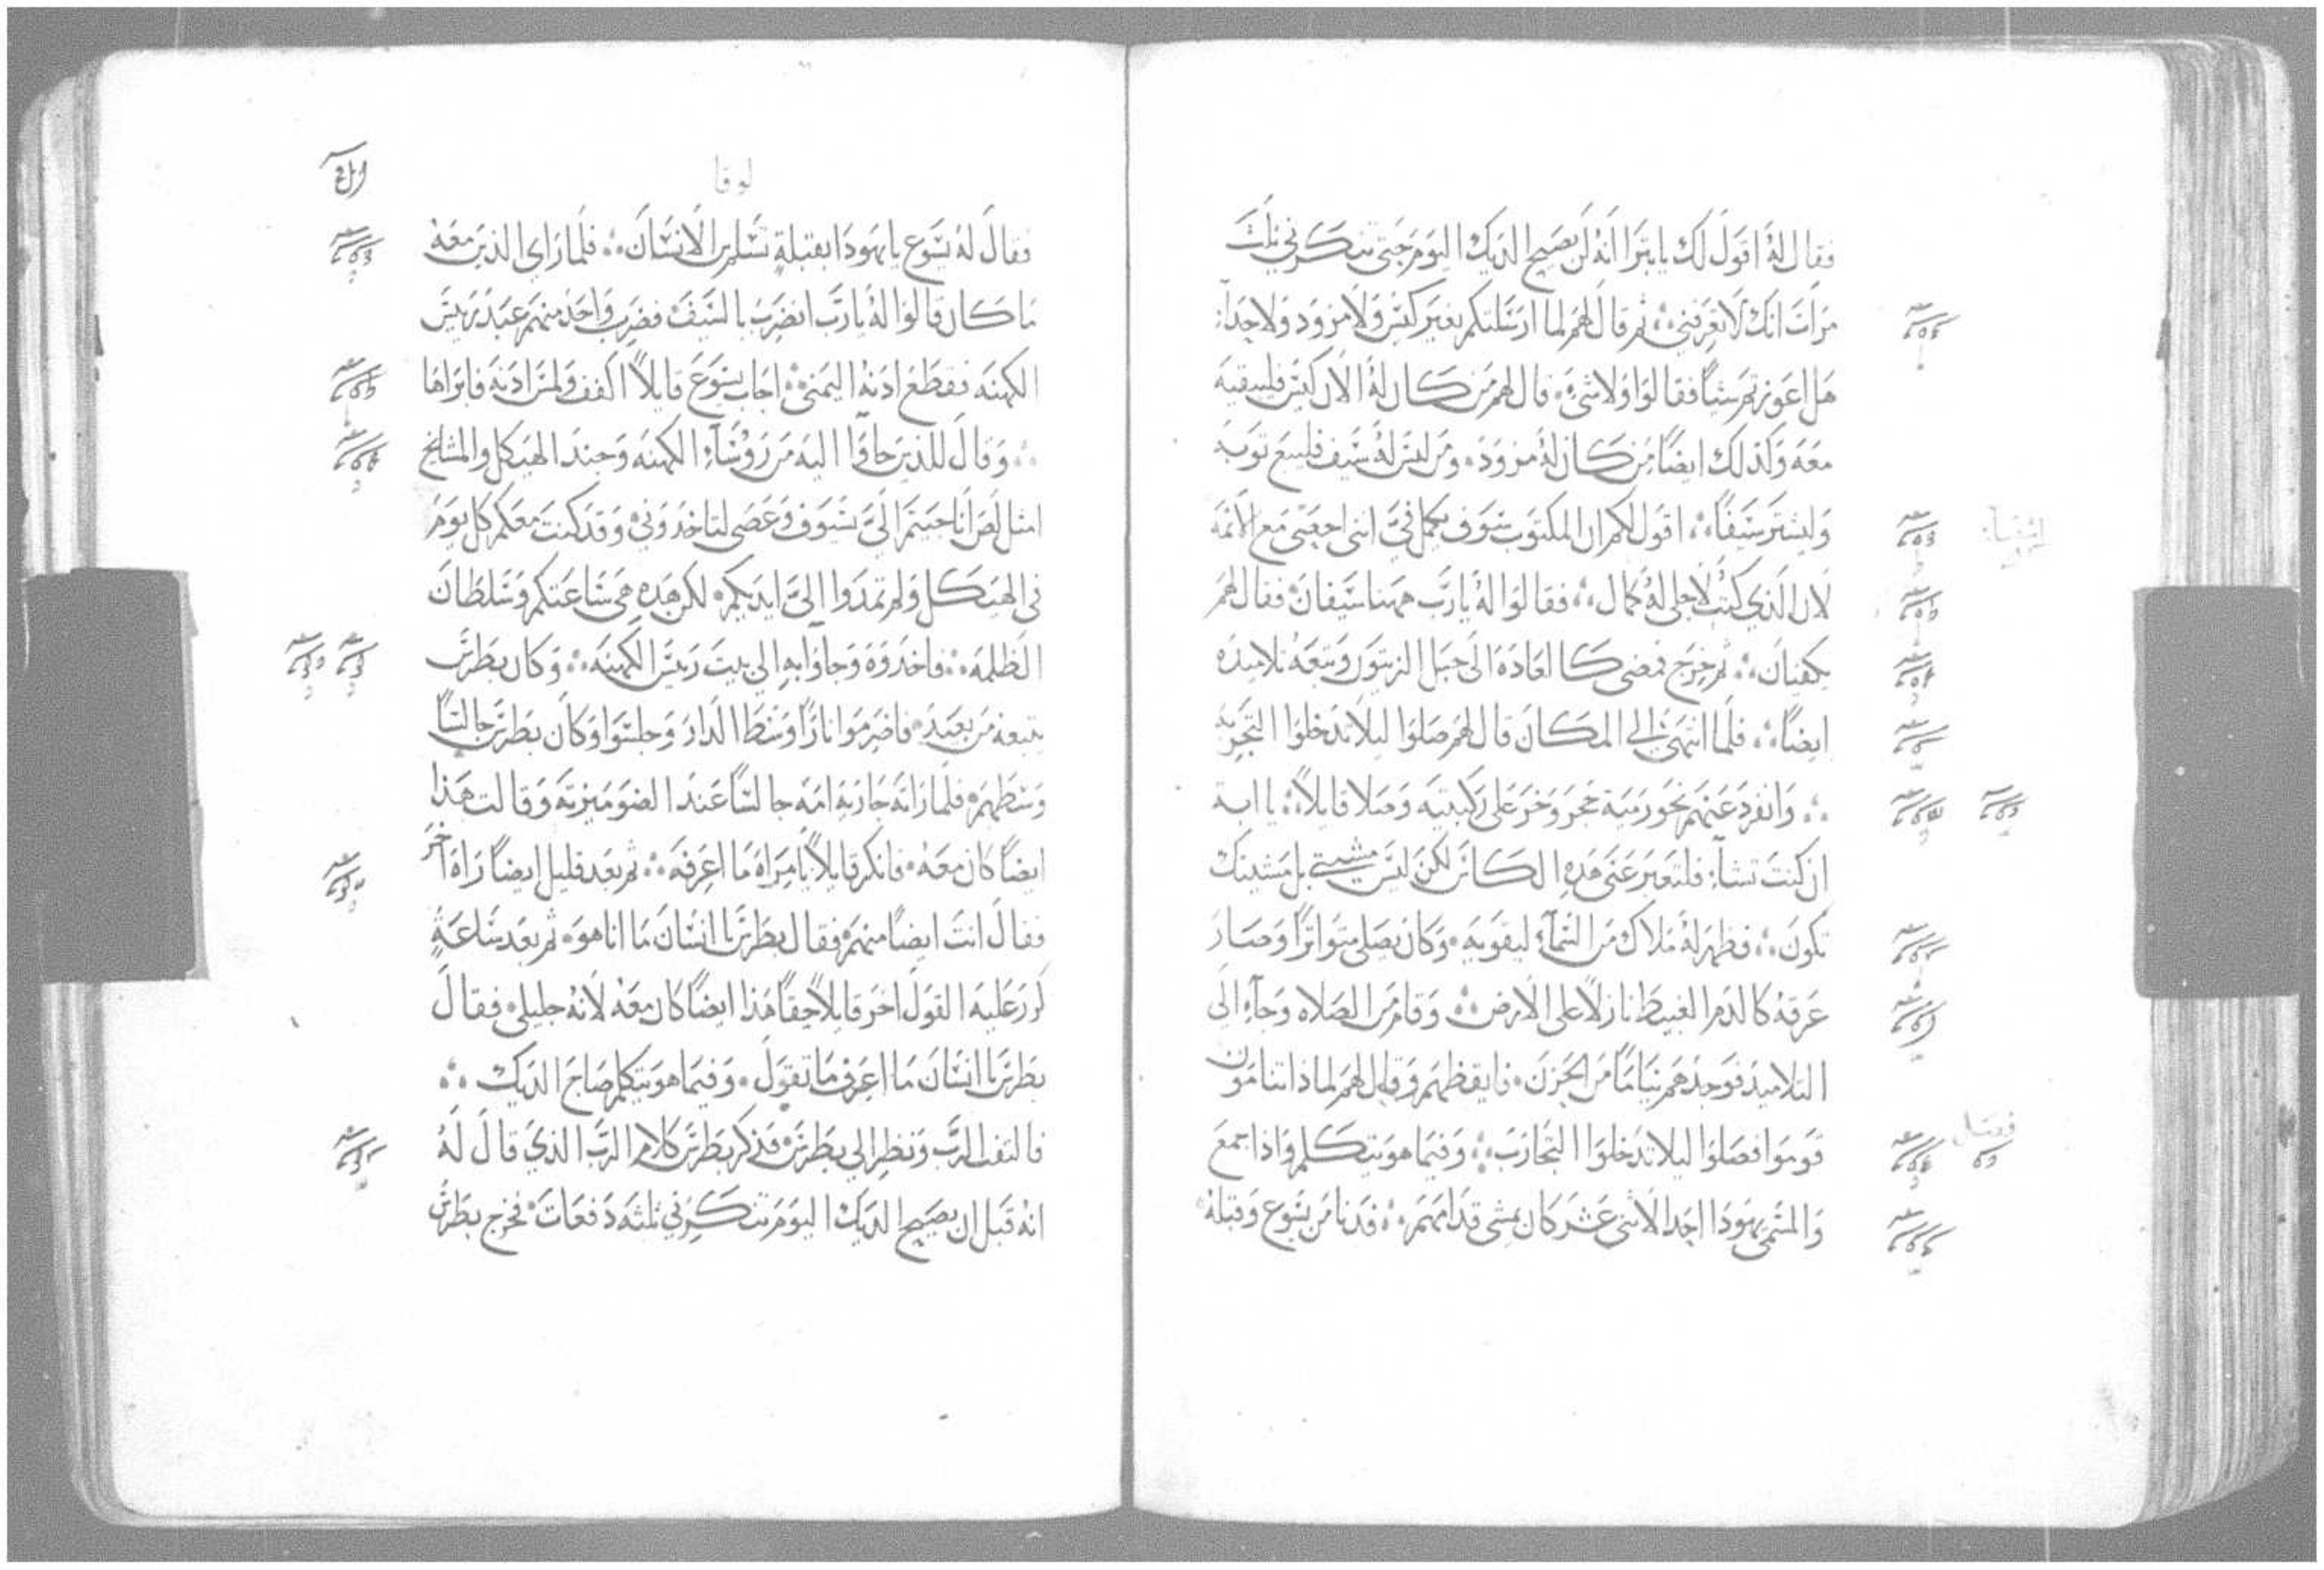 فقال لهُ اقول لك يا بترا انه لن يصيح الديك اليوم حتى تنكرني ثلث
مرات انك لا تعرفني ثم قال لهم لما ارسلتكم بغير كيس ولا مزود ولا حذآء
هل اعوزتم شياً فقالوا ولا شيء قال لهم من كان لهُ الان كيس فليبقيه
معه وكذلك ايضاً من كان لهُ مزود ومن ليس لهُ سيف فليبيع توبه
وليشتر سيفاً اقول لكم ان المكتوب سوف يكمل فيَّ انني احصى مع الاثمة
اشعيا
لان الذي كتب لاجلي لهُ كمال فقالوا لهُ يا رب ههنا سيفان فقال لهم
يكفيان ثم خرج فمضى كالعادة الى جبل الزيتون وتبعه تلاميذه
ايضاً فلما انتهى الى المكان قال لهم صلوا ليلا تدخلوا التجربة
وانفرد عنهم نحو رمية حجر وخر على ركبتيه وصلا قايلاً يا ابة
ان كنت تشآء فلتعبر عني هذه الكاس لكن ليس مشيتي بل مشيتك
تكون فظهر لهُ ملاك من السمآء ليقويه وكان يصلي متواتراً وصار
عرقهُ كالدم العبيط نازلاً على الارض وقام من الصلاه وجآء الى
التلاميذ فوجدهم نياماً من الحزن فايقظهم وقال لهم لماذا تنامون
قوموا فصلوا ليلا تدخلوا التجارب وفيما هو يتكلم واذا جمع
فصل
والمسمى يهودا احد الاثنى عشر كان يمشي قدامهم فدنا من يسوع وقبلهُ
لوقا
فقال لهُ يسوع يا يهودا ابقبلة تسلم ابن الانسان فلما راى الذين معه
ما كان قالوا لهُ يا رب انضرب بالسيف فضرب واحد منهم عبد رييس
الكهنه فقطع ادنه اليمنى اجاب يسوع قايلاً اكفف ولمس ادنه فابراها
وقال للذين جاوا اليه من روسآء الكهنه وجند الهيكل والمشايخ
امثل لص انا جيتم اليَّ بسيوف وعصي لتاخدوني وقد كنت معكم كل يوم
في الهيكل ولم تمدوا اليَّ ايديكم لكن هذه هي ساعتكم وسلطان
الظلمه فاخدوه وجاوا به الى بيت رييس الكهنه وكان بطرس
يتبعه من بعيد فاضرموا ناراً وسط الدار وجلسوا وكان بطرس جالساً
وسطهم فلما راته جاريه امه جالساً عند الضو ميزته وقالت هذا
ايضاً كان معه فانكر قايلاً يا مراة ما اعرفه ثم بعد قليل ايضاً راة اخر
فقال انت ايضاً منهم فقال بطرس يا انسان ما انا هو ثم بعد ساعةٍ
كرر عليه القول اخر قايلاً حقاً هذا ايضاً كان معه لانه جليلي فقال
بطرس يا انسان ما اعرف ما تقول وفيما هو يتكلم صاح الديك
فالتفت الرب ونظر الى بطرس فذكر بطرس كلام الرب الذي قال لهُ
انه قبل ان يصيح الديك اليوم تنكرني ثلثه دفعات فخرج بطرس